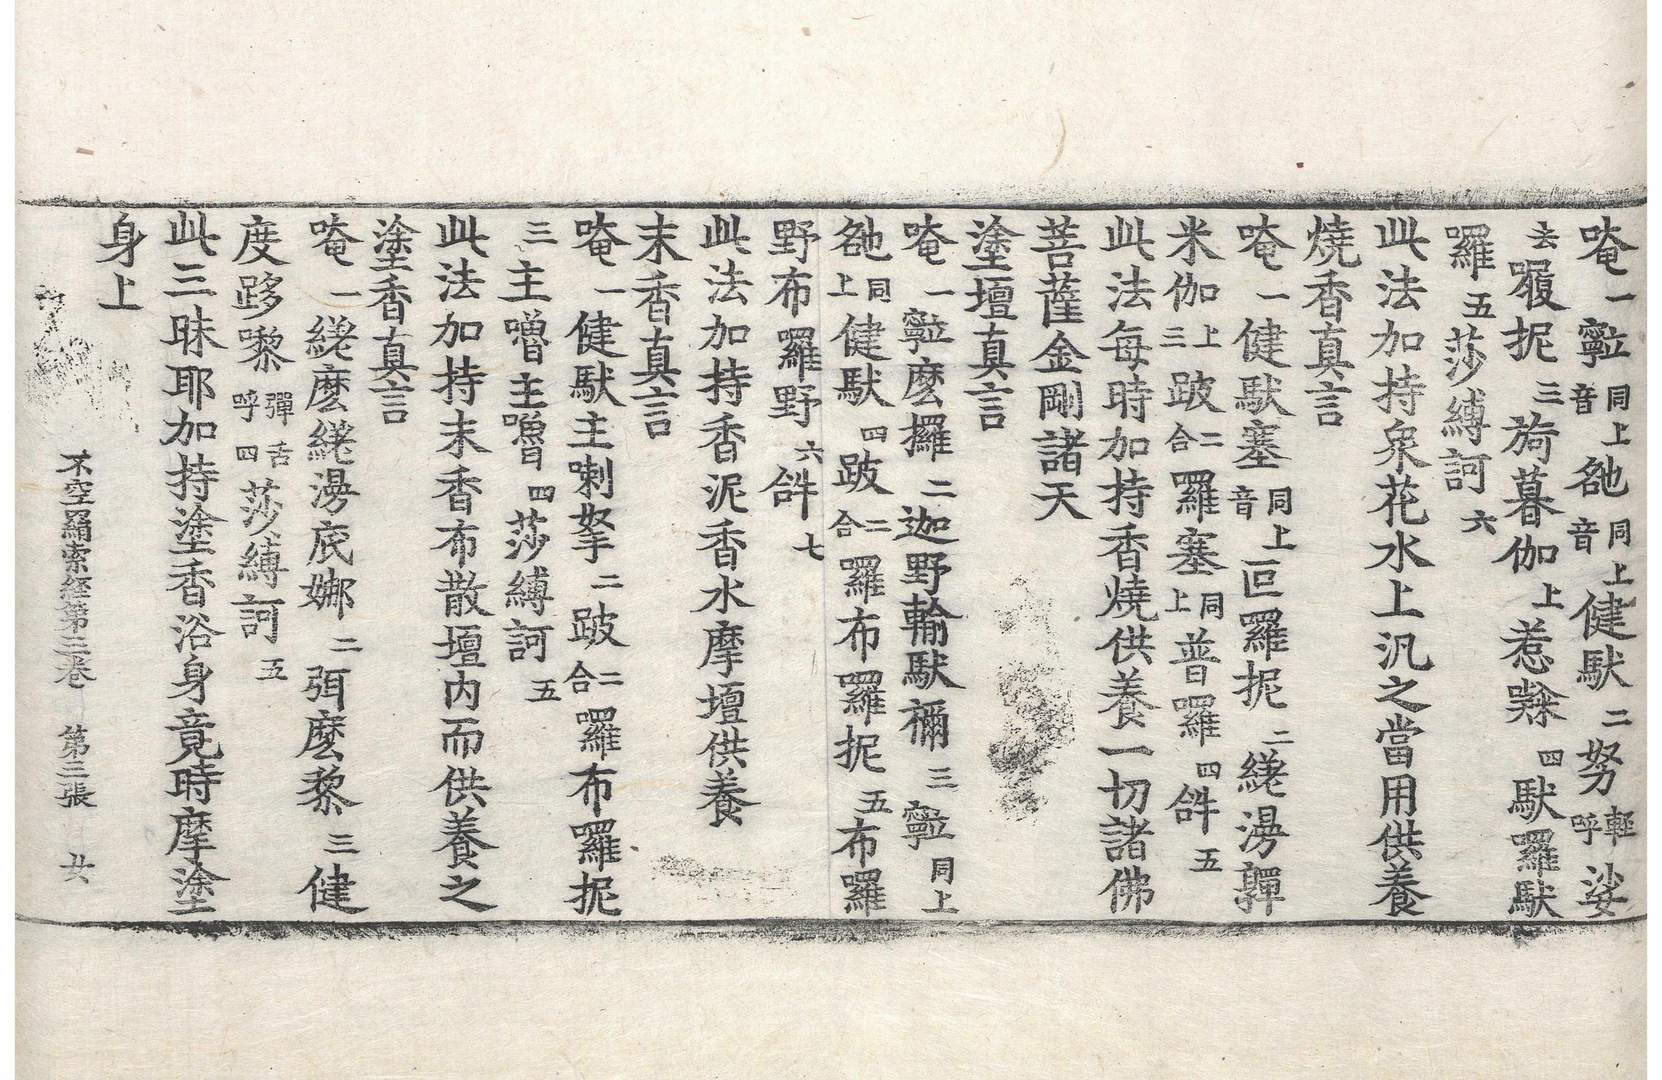 唵一𤚥同上音㘕同上音健馱二努輕呼娑
去履抳三旖暮伽上惹𡄣四馱羅馱
羅五莎縛訶六
此法加持眾花水上汎之當用供養
燒香真言
唵一健馱塞同上音叵羅抳二繾漫亸
米伽上三跛二合羅塞同上普羅四𤙖五
此法每時加持香燒供養一切諸佛
菩薩金剛諸天
塗壇真言
唵一麼攞二迦野輸馱禰三同上
同上健馱四跛二合羅布羅抳五布羅
野布羅野六𤙖七
此法加持香泥香水摩壇供養
末香真言
唵一健馱主喇拏二跛二合羅布羅抳
三主嚕主嚕四莎縛訶五
此法加持末香布散壇內而供養之
塗香真言
唵一繾麼繾漫底娜二弭麼黎三健
度路嚟彈舌呼四莎縛訶五
此三昧耶加持塗香浴身竟時摩塗
身上
不空羂索經第三卷 第三張 女